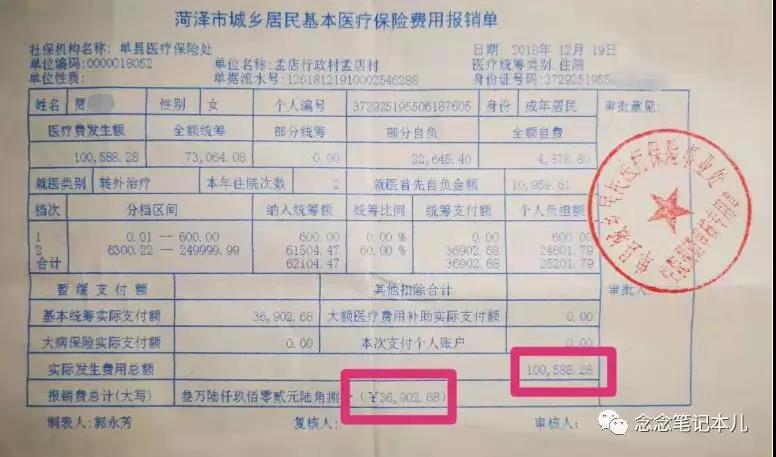 菏泽市城乡居民基本医疗保险费用报销单
社保机构名称: 单县医疗保险处 日期: 2018年 12月 19日
单位编码:0000018052 单位名称:孟店行政村孟店村 医疗统筹类别 住院
单位性质: 单据流水号:12618121910002546288 身份证号码:372925195
姓名 贾 性别 女 个人编号 372925195506187605 身份 成年居民 审批意见:
医疗费发生额 全额统筹 部分统筹 部分自负 全额自费
100,588.28 73,064.08 0.00 22,645.40 4,878.80
就医类别 转外治疗 本年住院次数 2 就医首先自负金额 10,959.61
档次 分档区间 纳入统筹额 统筹比例 统筹支付额 个人负担额
1 0.01 --600.00 600.00 0.00 % 0.00 600.00
2 6300.22 --249999.99 61504.47 60.00 % 36902.68 24601.79
合计 62104.47 36902.68 25201.79
暂缓支付额 其他扣除合计 审批人:
基本统筹实际支付额 36,902.68 大额医疗费用补助实际支付额 0.00
大病保险实际支付额 0.00 本次支付个人账户 0.00
实际发生费用总额 100,588.28
报销费总计(大写) 叁万陆仟玖佰零贰元陆角捌 (¥36,902.68)
制表人:郭永芳 复核人: 审核人:
念念笔记本儿